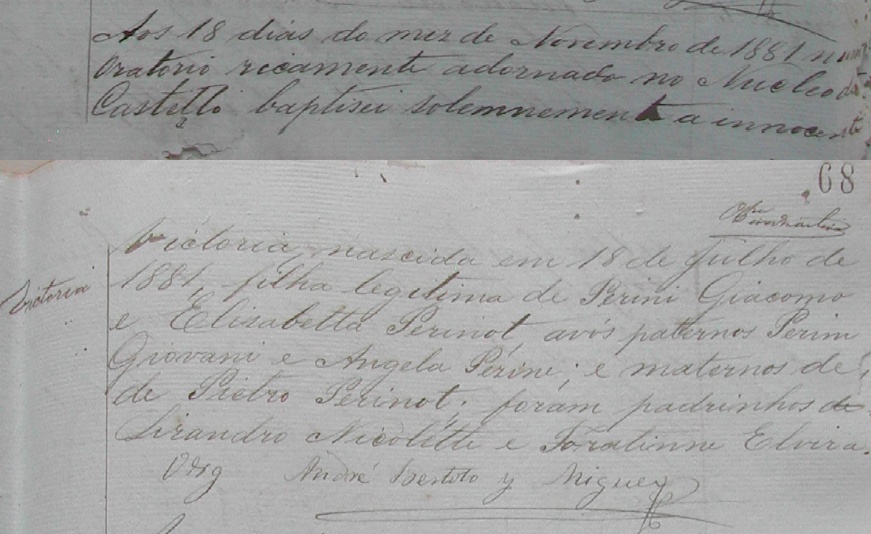 Aos 18 dias do mez de Novembro de 1881 num
Oratorio ricamente adornado no Nucleo do
Castello baptisei solemnemente a innocente
68
Victoria
Victoria, nascida em 18 de Julho de
1881, filha legitima de Perini Giacomo
e Elisabetta Perinot, avós paternos Perini
Giovani e Angela Perine; e maternos de
de Pietro Perinot; foram padrinhos de
Lirandro Nicoletti e Toratinne Elvira.
O Vig André Bertolo y Miguez